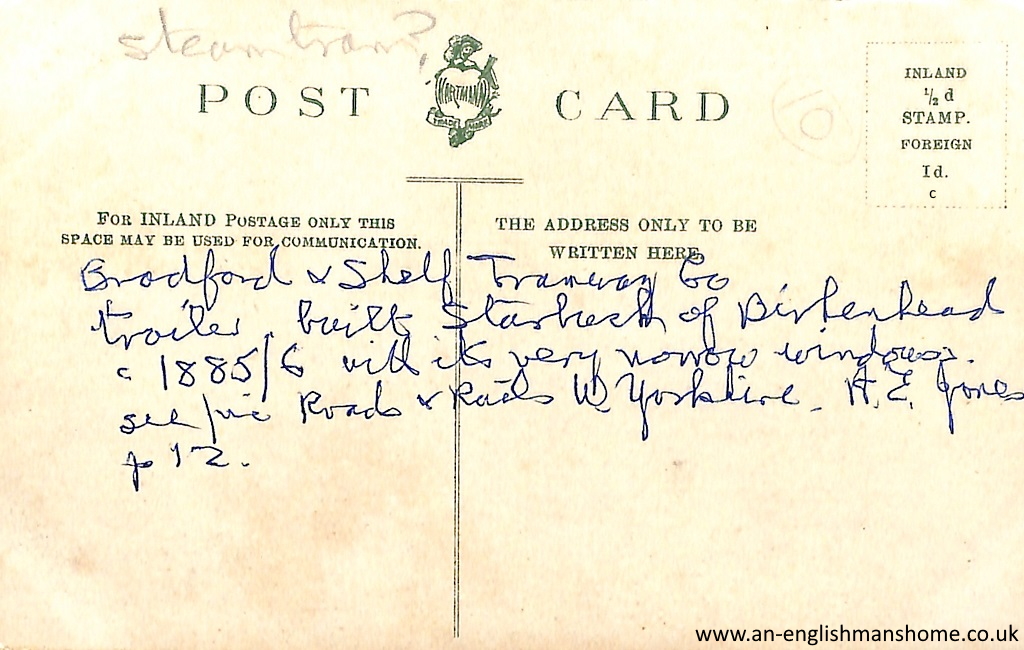 steam tram?
POST CARD
HARTMANN
TRADE MARK
INLAND
½ d
STAMP.
FOREIGN
1d.
c
10
FOR INLAND POSTAGE ONLY THIS
SPACE MAY BE USED FOR COMMUNICATION.
THE ADDRESS ONLY TO BE
WRITTEN HERE
Bradford & Shelf Tramway Co
trailer, built Starbuck of Birkenhead
c 1885/6 with its very narrow windows.
see pic Roads & Rails W Yorkshire. A.E. Jones
p 12.
www.an-englishmanshome.co.uk